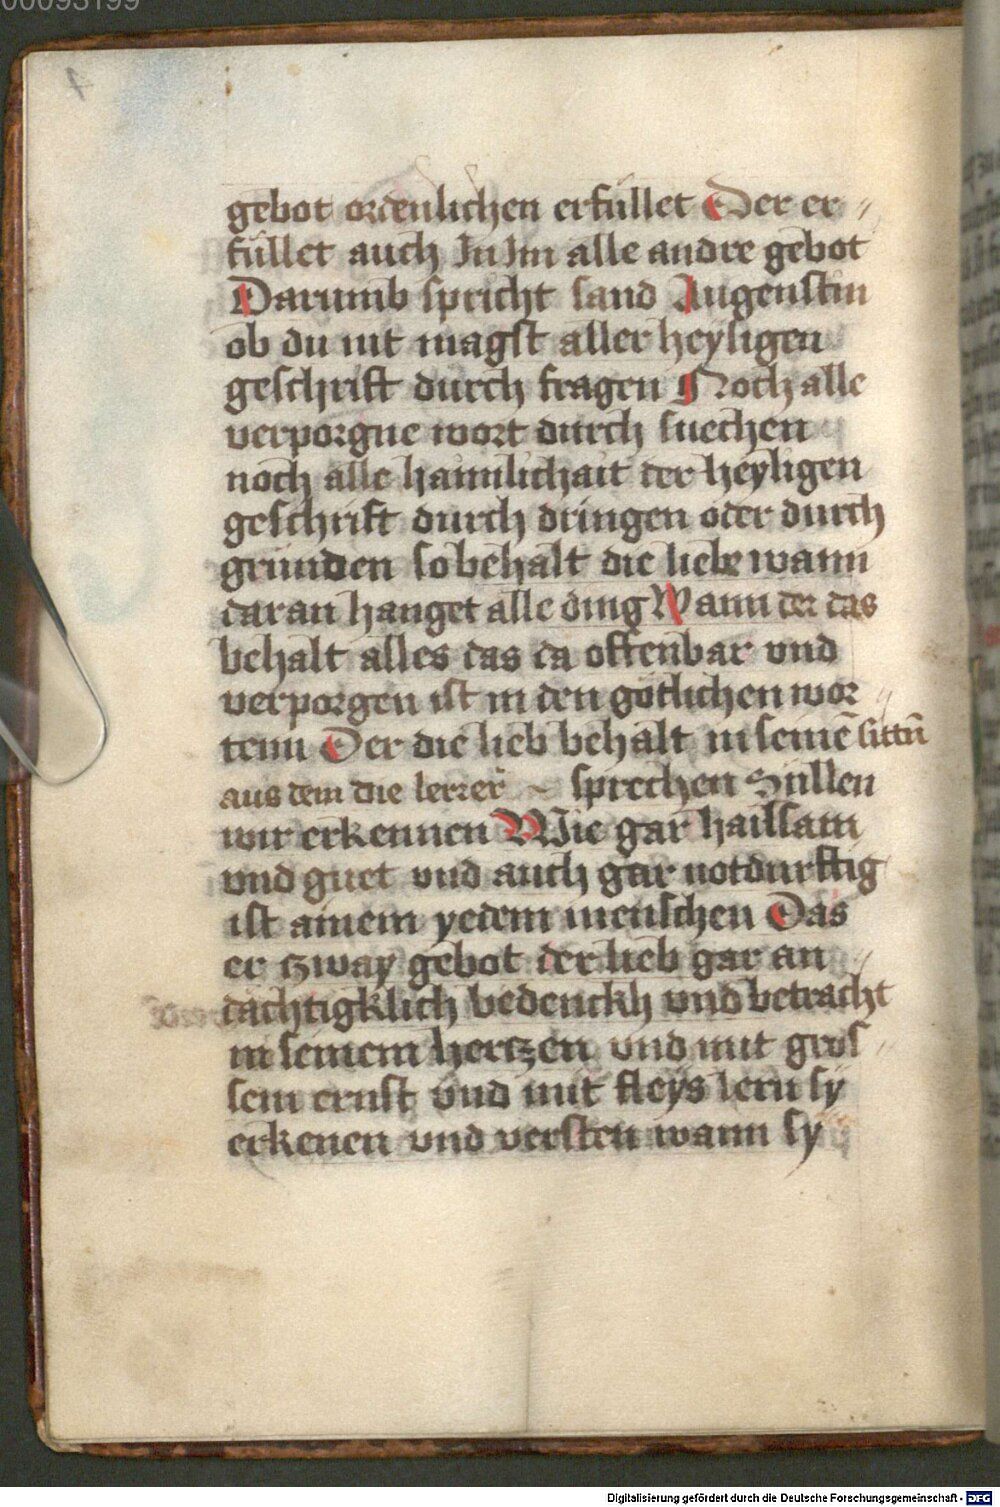 00093199
4
gebot ordenlichen erfüllet Der er〃
füllet auch In Im alle andre gebot
Darumb spricht sand Augenstin
ob du nit magst aller heyligen
geschrift durch fragen Noch alle
verporgne wort durch suechen
noch alle haimlichait der heyligen
geschrift durch dringen oder durch
gründen so behalt die liebe wann
daran hanget alle ding Wann der das
behalt alles das da offenbar vnd
verporgen ist in den götlichen wor〃
tenn Der die lieb behalt in seinē sittn̄
aus dem die lerrer ~ sprechen Süllen
wir erkennen Wie gar hailsam
vnd guet vnd auch gar notdurfftig
ist ainem yedem menschen Das
er tzway gebot der lieb gar an〃
dächtigklich bedenckh vnd betracht
in seinem hertzen vnd mit gros〃
sem ernst vnd mit fleys lern sy
erkenen vnd versten wann sy
Digitalisierung gefördert durch die Deutsche Forschungsgemeinschaft - DFG